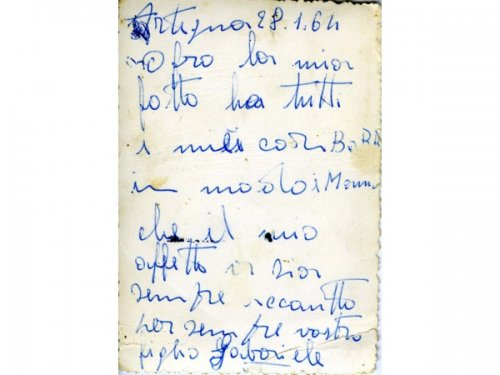 Artegna 28.1.64
Ofro la mia
fotto ha tutti
i miei cari
in modo i
che il mio
affetto vi sia
sempre accantto
per sempre vostro
figlio Gabriele